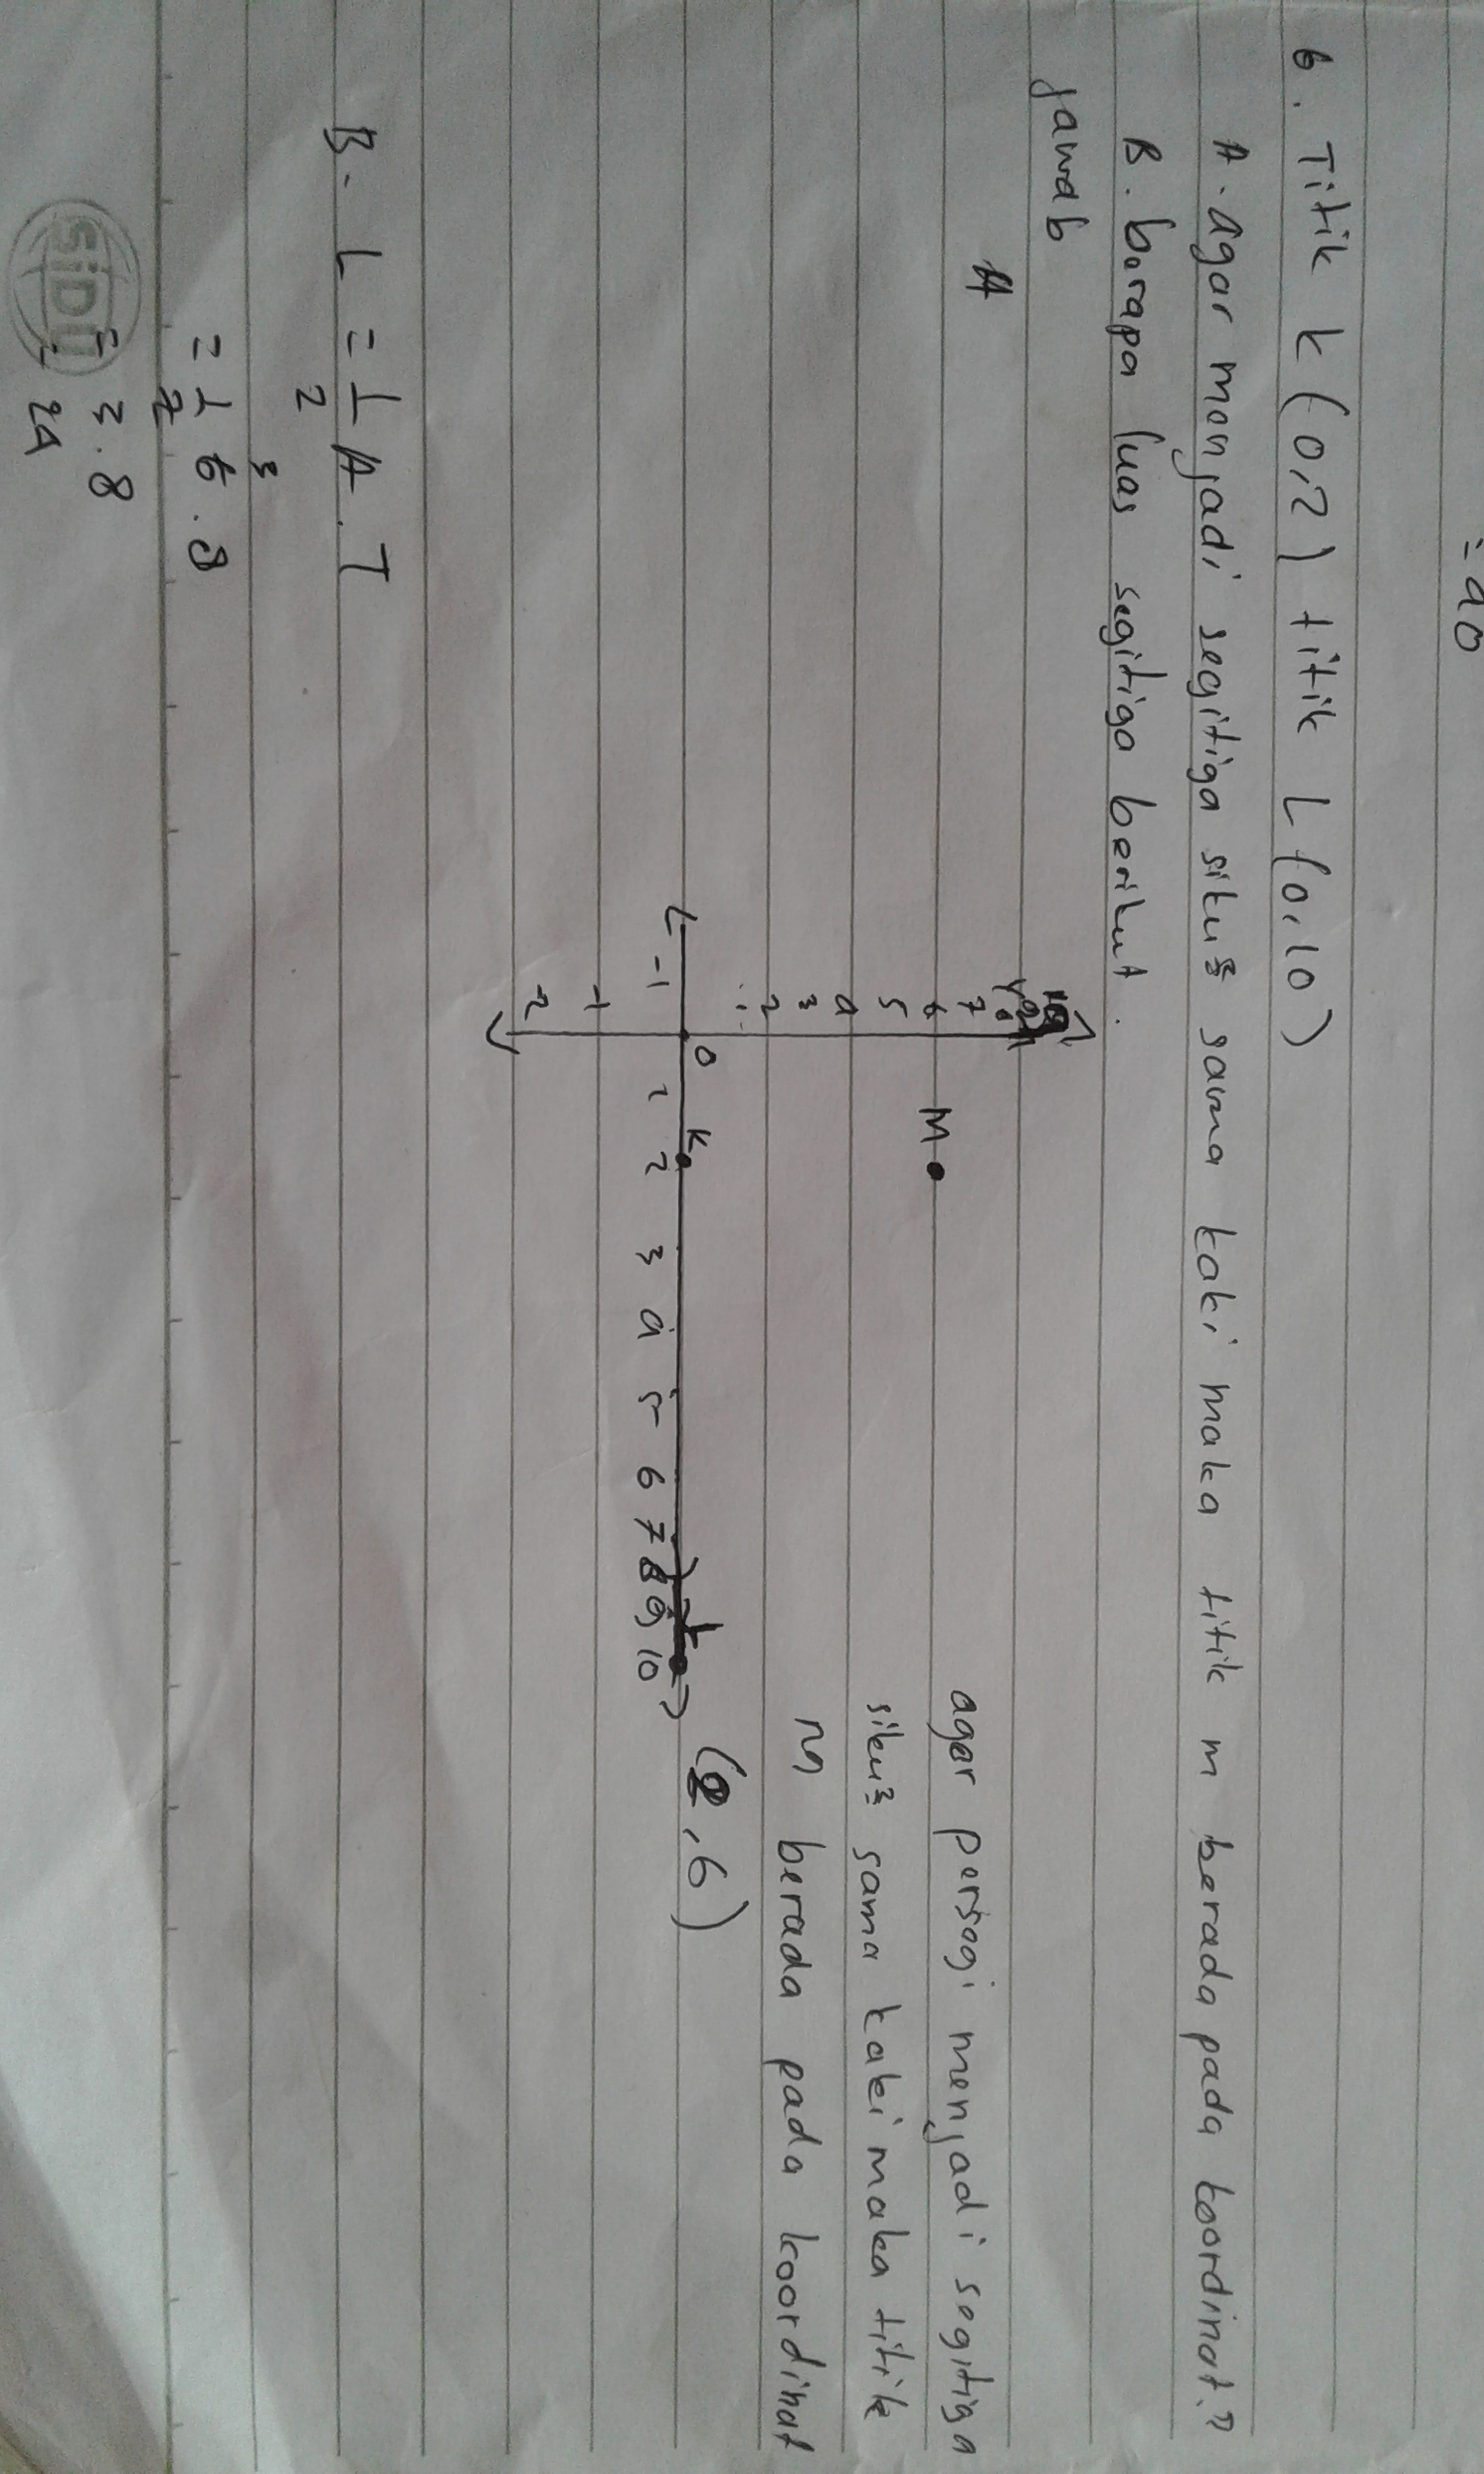 = 40
6. Titik k (0,2) titik L (0,10)
A. agar menjadi segitiga siku2 sama kaki maka titik m berada pada koordinat..?
B. berapa luas segitiga berikut.
Jawab
A
7
6
5
4
3
2
-1
-2
-1 0 1 2 3 4 5 6 7 8 9 10
M
K
L
agar persegi menjadi segitiga
siku2 sama kaki maka titik
M berada pada koordinat
(2,6)
B. L = 1/2 A. T
= 1/2 6 3 . 8
= 3.8
= 24
SiDU